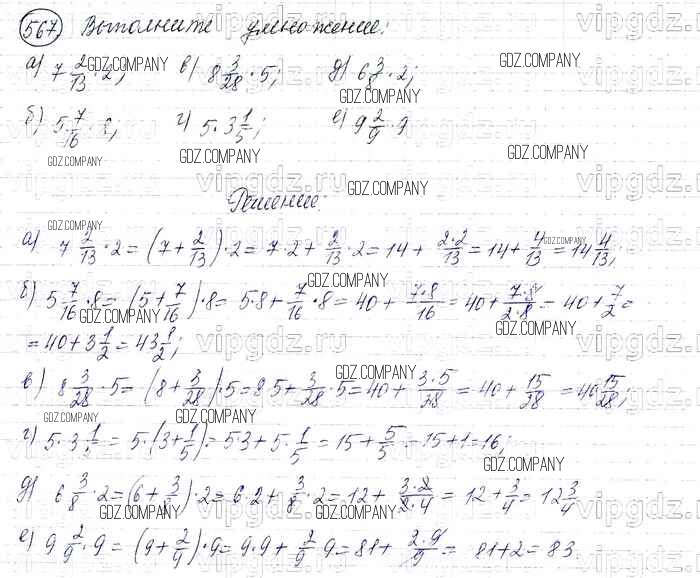 567 Выполните умножение:
а) 7 2/13 · 2; в) 8 3/28 · 5; д) 6 3/8 · 2;
б) 5 7/16 · 8; г) 5 · 3 1/5; е) 9 2/9 · 9
Решение:
а) 7 2/13 · 2 = (7 + 2/13) · 2 = 7 · 2 + 2/13 · 2 = 14 + 2·2/13 = 14 + 4/13 = 14 4/13;
б) 5 7/16 · 8 = (5 + 7/16) · 8 = 5·8 + 7/16 · 8 = 40 + 7·8/16 = 40 + 7·8/2·8 = 40 + 7/2 =
= 40 + 3 1/2 = 43 1/2;
в) 8 3/28 · 5 = (8 + 3/28) · 5 = 8·5 + 3/28 · 5 = 40 + 3·5/28 = 40 + 15/28 = 40 15/28;
г) 5 · 3 1/5 = 5 · (3 + 1/5) = 5·3 + 5 · 1/5 = 15 + 5/5 = 15 + 1 = 16;
д) 6 3/8 · 2 = (6 + 3/8) · 2 = 6·2 + 3/8 · 2 = 12 + 3·2/2·4 = 12 + 3/4 = 12 3/4
е) 9 2/9 · 9 = (9 + 2/9) · 9 = 9·9 + 2/9 · 9 = 81 + 2·9/9 = 81 + 2 = 83.
GDZ.COMPANY
vipgdz.ru